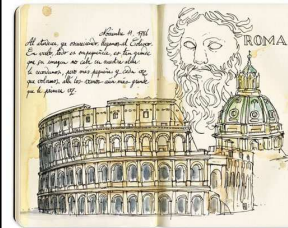 Noviembre 11, 1786
Al atardecer, ya anocheciendo, llegamos al Coliseo.
En verlo, todo es empequeñece, es tan grande
que su imagen no cabe en nuestra alma
lo recordamos, pero más pequeño y cada vez
que volvemos, ello los crecemos aún más grande
que la primera vez.
ROMA